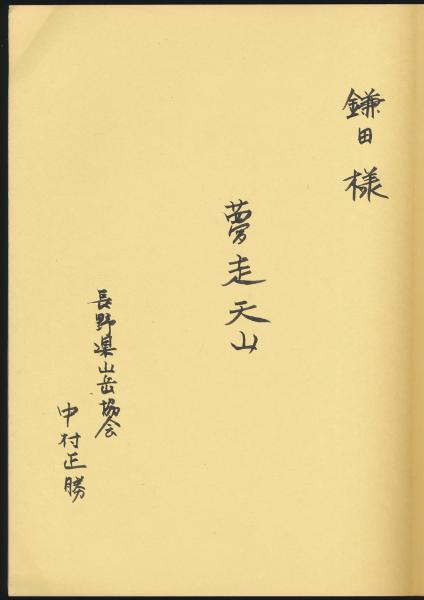 鎌田 様
夢走天山
長野県山岳協会
中村正勝